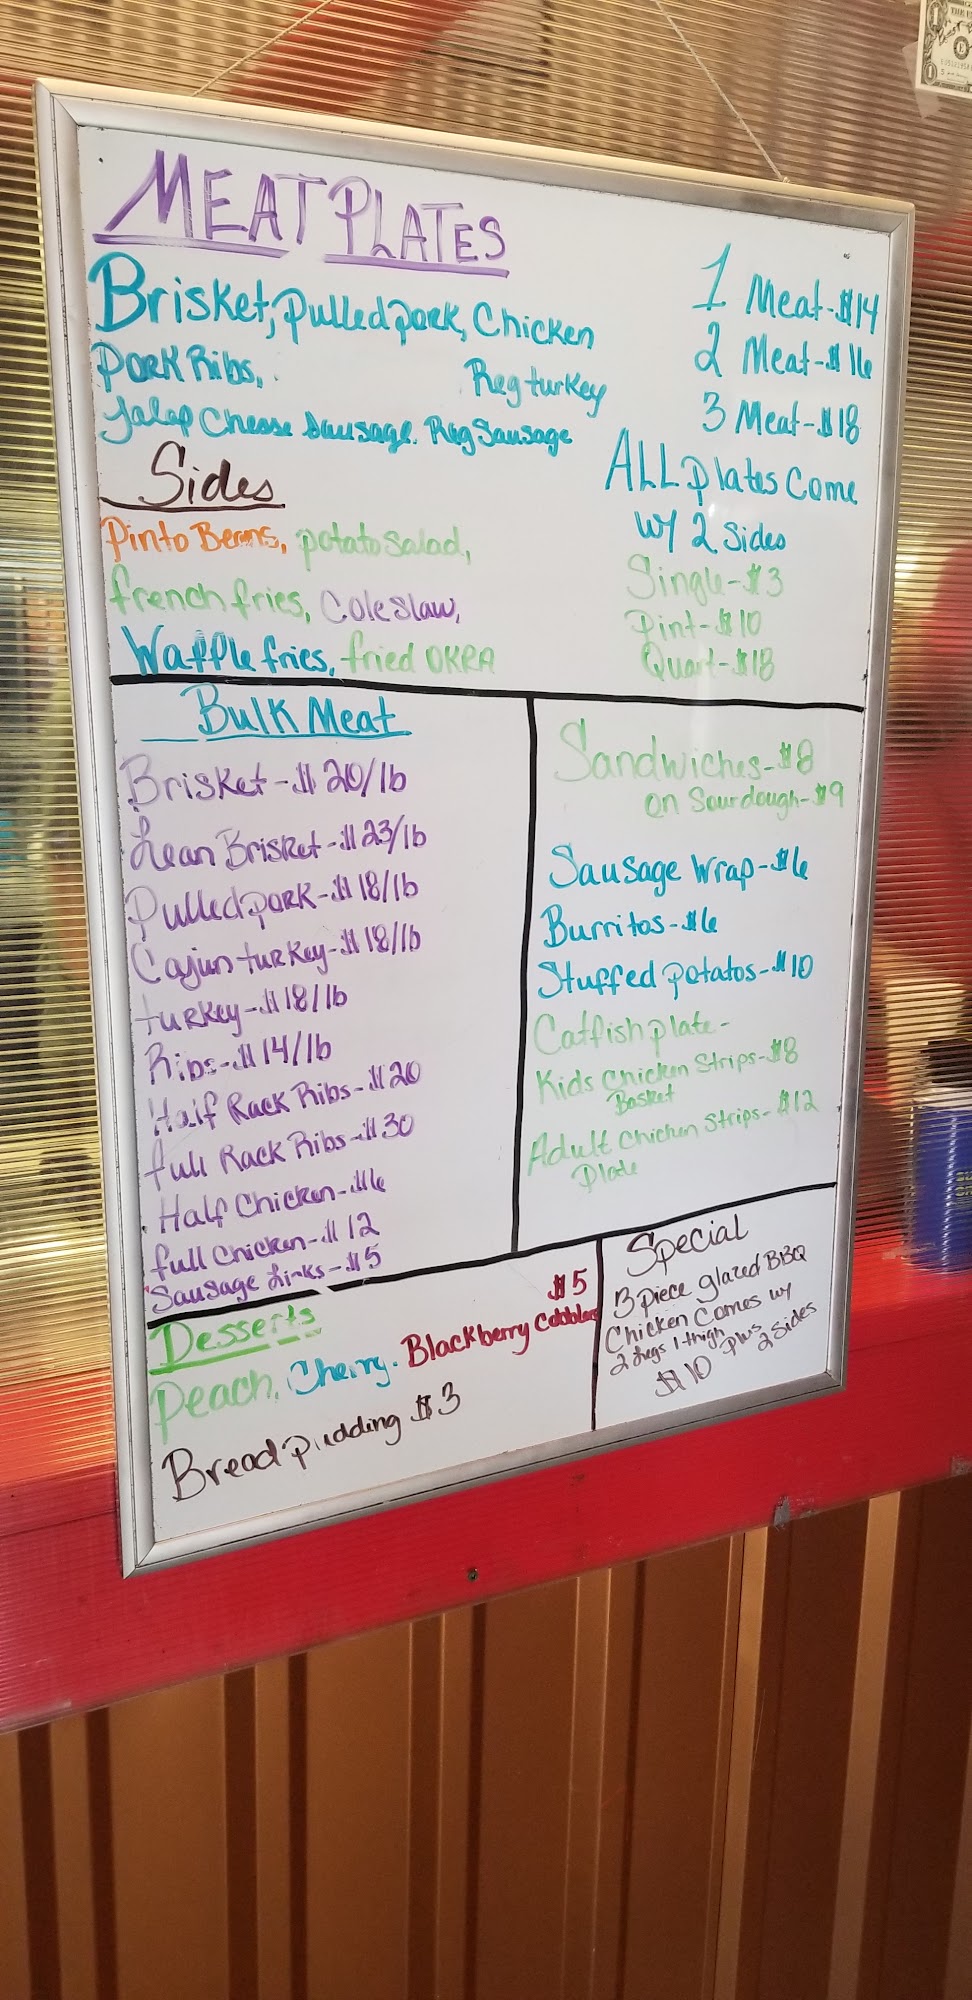 MEAT PLATES
Brisket, Pulled pork, Chicken
Pork Ribs, Reg turkey
Jalap Cheese Sausage. Reg Sausage
1 Meat-$14
2 Meat-$16
3 Meat-$18
ALL plates Come
w/ 2 sides
Sides
Pinto Beans, potato salad,
french fries, Cole Slaw,
Waffle fries, fried OKRA
Single-$3
Pint-$10
Quart-$18
Bulk Meat
Brisket-$20/lb
Lean Brisket-$23/lb
Pulled pork-$18/lb
Cajun turkey-$18/lb
turkey-$18/lb
Ribs-$14/lb
Half Rack Ribs-$20
full Rack Ribs-$30
Half Chicken-$6
full Chicken-$12
Sausage Links-$5
Sandwiches-$8
on Sourdough-$9
Sausage Wrap-$6
Burritos-$6
Stuffed potatos-$10
Catfish plate-
Kids Chicken Strips-$8
Basket
Adult Chicken Strips-$12
Plate
Desserts
$5
Peach, Cherry. Blackberry Cobbler
Bread pudding $3
Special
3 piece glazed BBQ
Chicken Comes w/
2 Legs 1 thigh plus
2 sides
$10